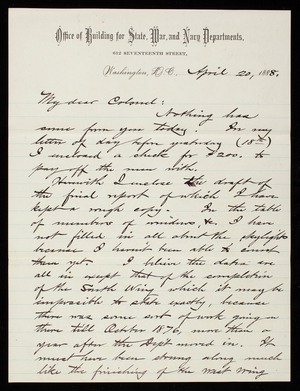 Office of Building for State, War, and Navy Departments,
SEVENTEENTH STREET,
Washington, D.C., April 20, 1888.
My dear Colonel:
Nothing has
come from you today. In my
letter of day before yesterday (18th)
I enclosed a check for $200. to
pay off the men with.
Herewith I enclose the draft of
the final report of which I have
kept a rough copy. In the table
of numbers of windows &c. I have
not filled in all about the skylights
because I haven't been able to
them yet. I believe the data are
all in except that of the completion
of the South Wing, which it may be
impossible to state exactly, because
there was some sort of work going on
there till October 1876, more than a
year after the Dept moved in. It
must have been strung along much
like the finishing of the West Wing